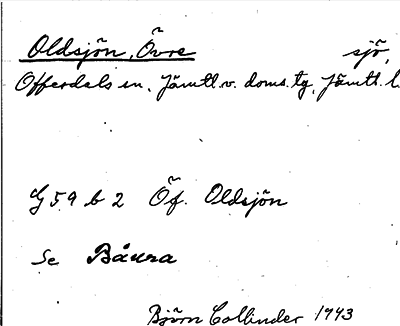 Oldsjön, Övre sjö,
Offerdals sn, Jämtl. v. doms. tg, Jämtl. l.
G 59 b 2 Öf. Oldsjön
Se Båura
Björn Collinder 1943